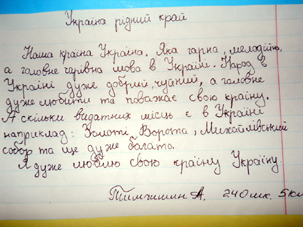 Україна рідний край
Наша країна Україна. Яка гарна, мелодійна,
а головне чарівна мова в Україні. Народ в
Україні дуже добрий, чуйний, а головне
дуже любить та поважає свою країну.
А скільки видатних місць є в Україні
наприклад: Золоті Ворота, Михайлівський
собор та ще дуже багато.
Я дуже люблю свою країну Україну.
А. 240 шк. 5 кл